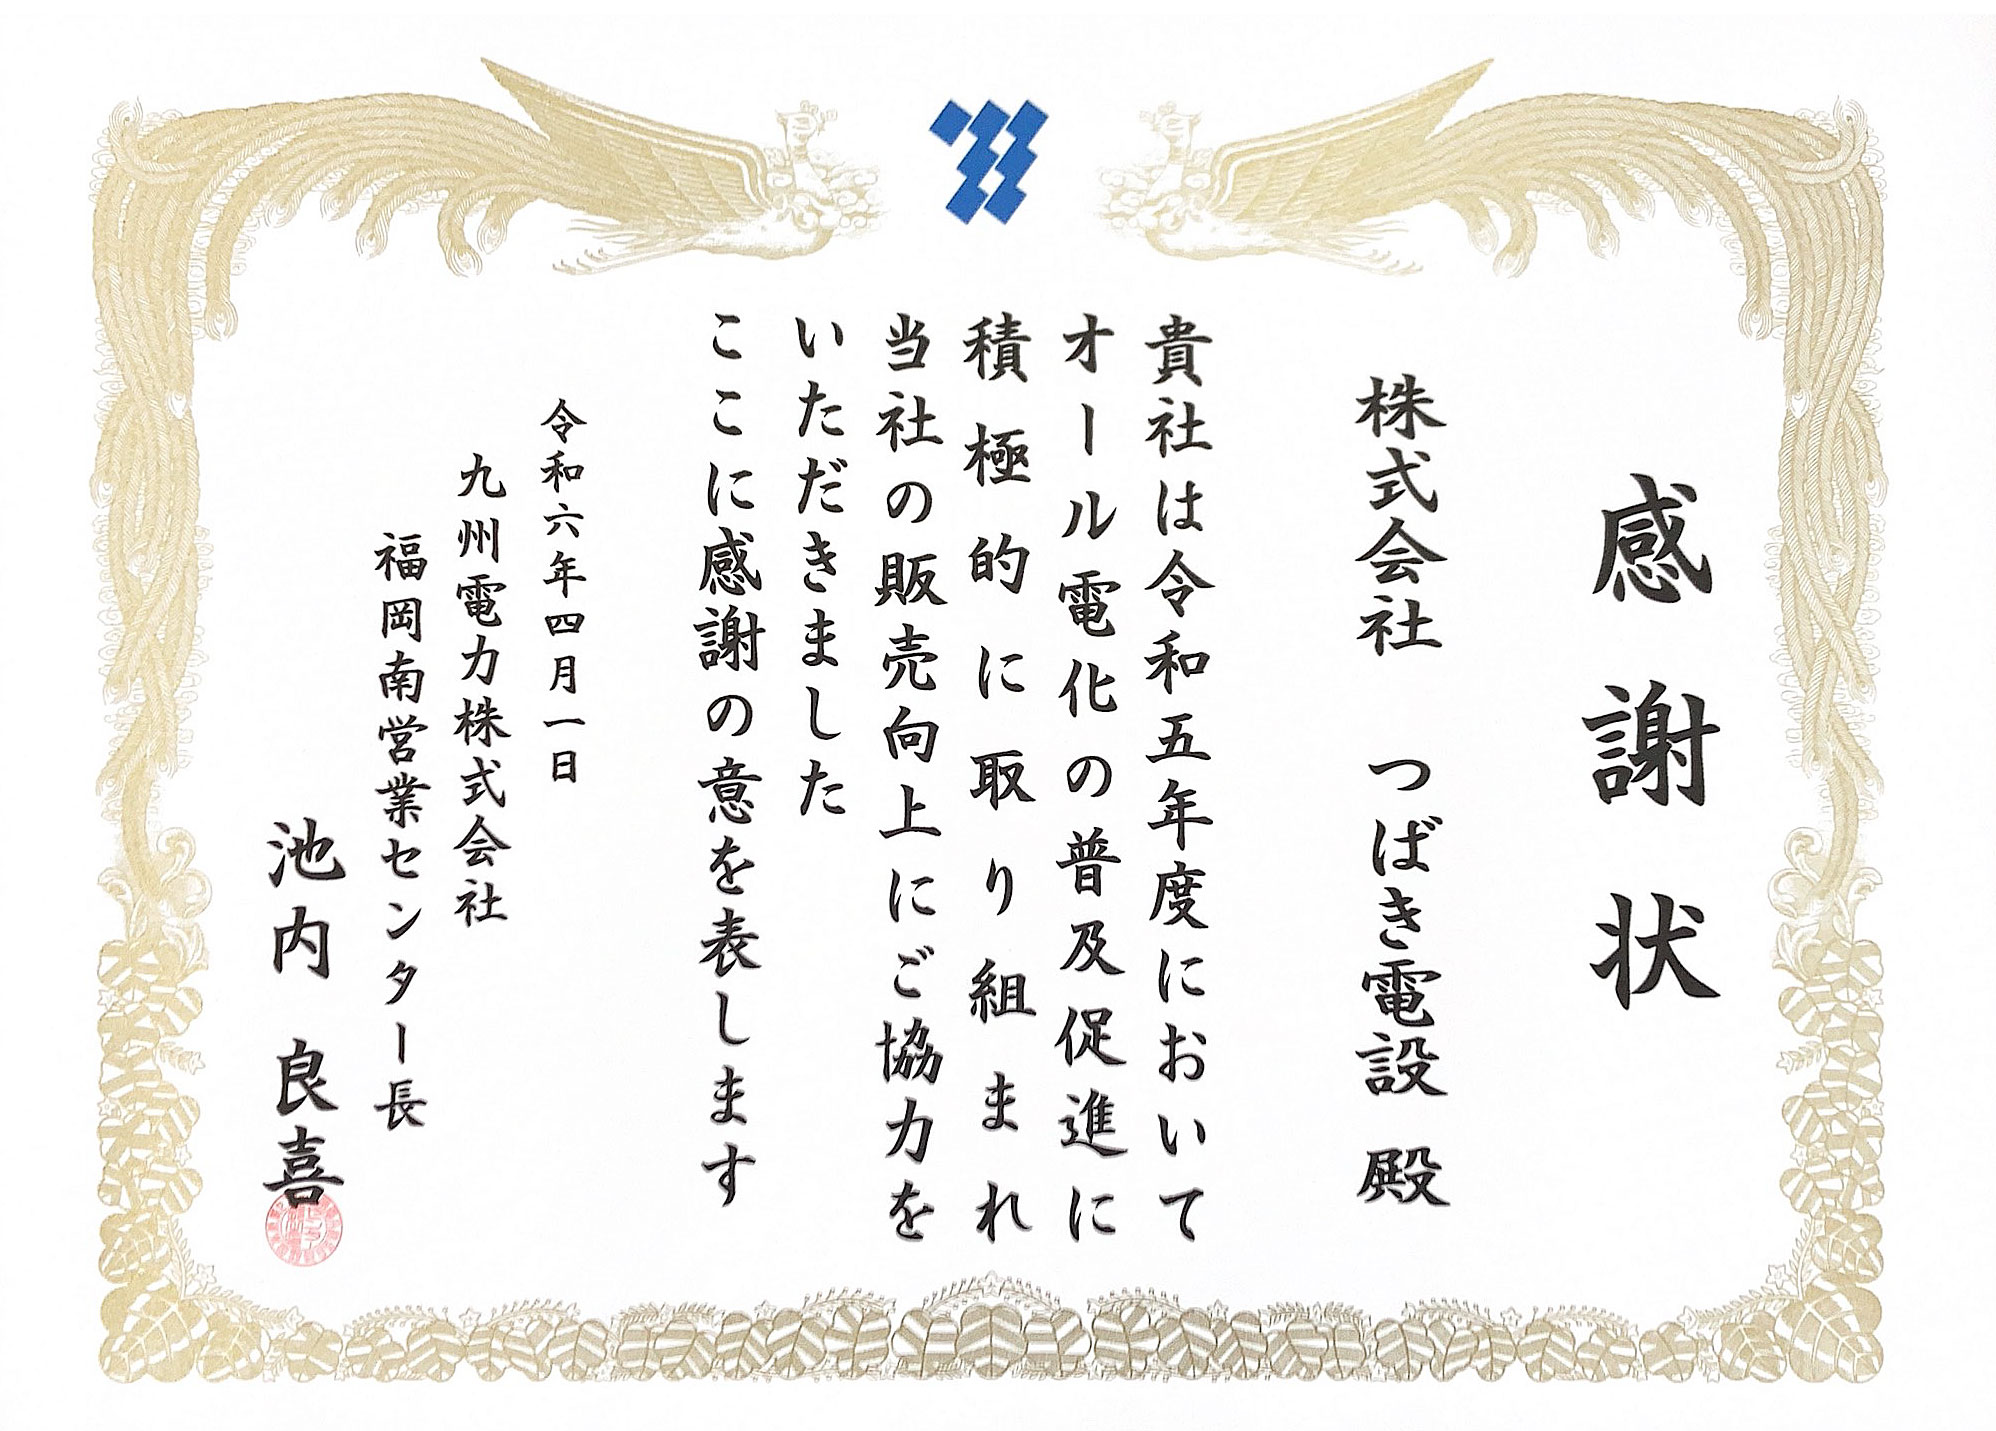 感謝状
株式会社 つばき電設 殿
貴社は令和五年度において
オール電化の普及促進に
積極的に取り組まれ
当社の販売向上にご協力を
いただきました
ここに感謝の意を表します
令和六年四月一日
九州電力株式会社
福岡南営業センター長
池内 良喜